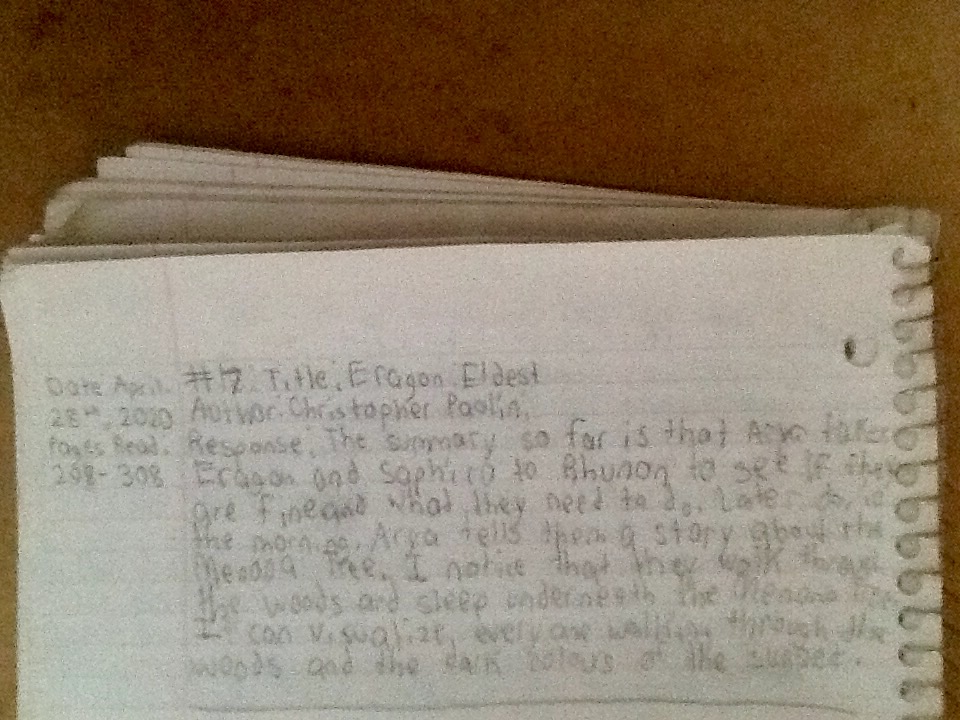 Date April #7 Title: Eragon Eldest
28th, 2020 Author: Christopher Paolin.
Pages Read. Response: The summary so far is that Arya takes
298-308 Eragon and Saphira to Rhunon to see if they
are fine and what they need to do. Later in
the morning, Arya tells them a story about the
Menoa Tree. I notice that they walk through
the woods and sleep underneath the Menoa
I can visualize, everyone walking through the
woods and the dark colours of the sunset.